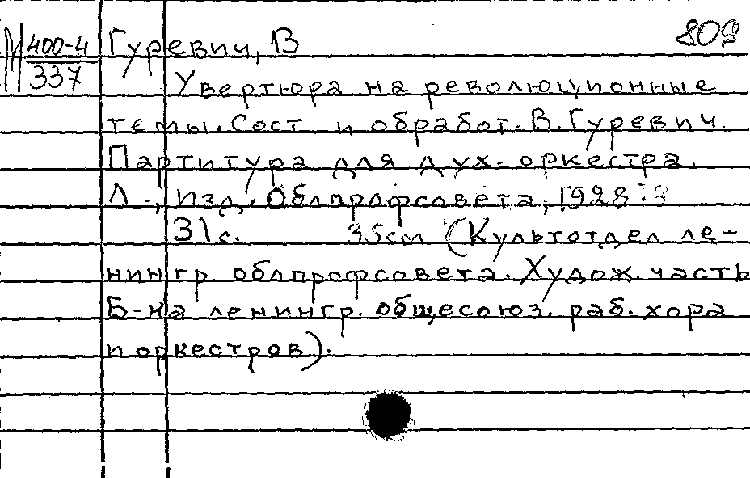 М 400-4 Гуревич, В 809
337 Увертюра на революционные
темы. Сост. и обработ. В. Гуревич.
Партитура для дух. оркестра.
Л., Изд. Облпрофсовета, 1928
31 с. 35см (Культотдел ле-
нингр облпрофсовета. Худож. часть
Б-ка ленингр. общесоюз. раб. хора
и оркестров).